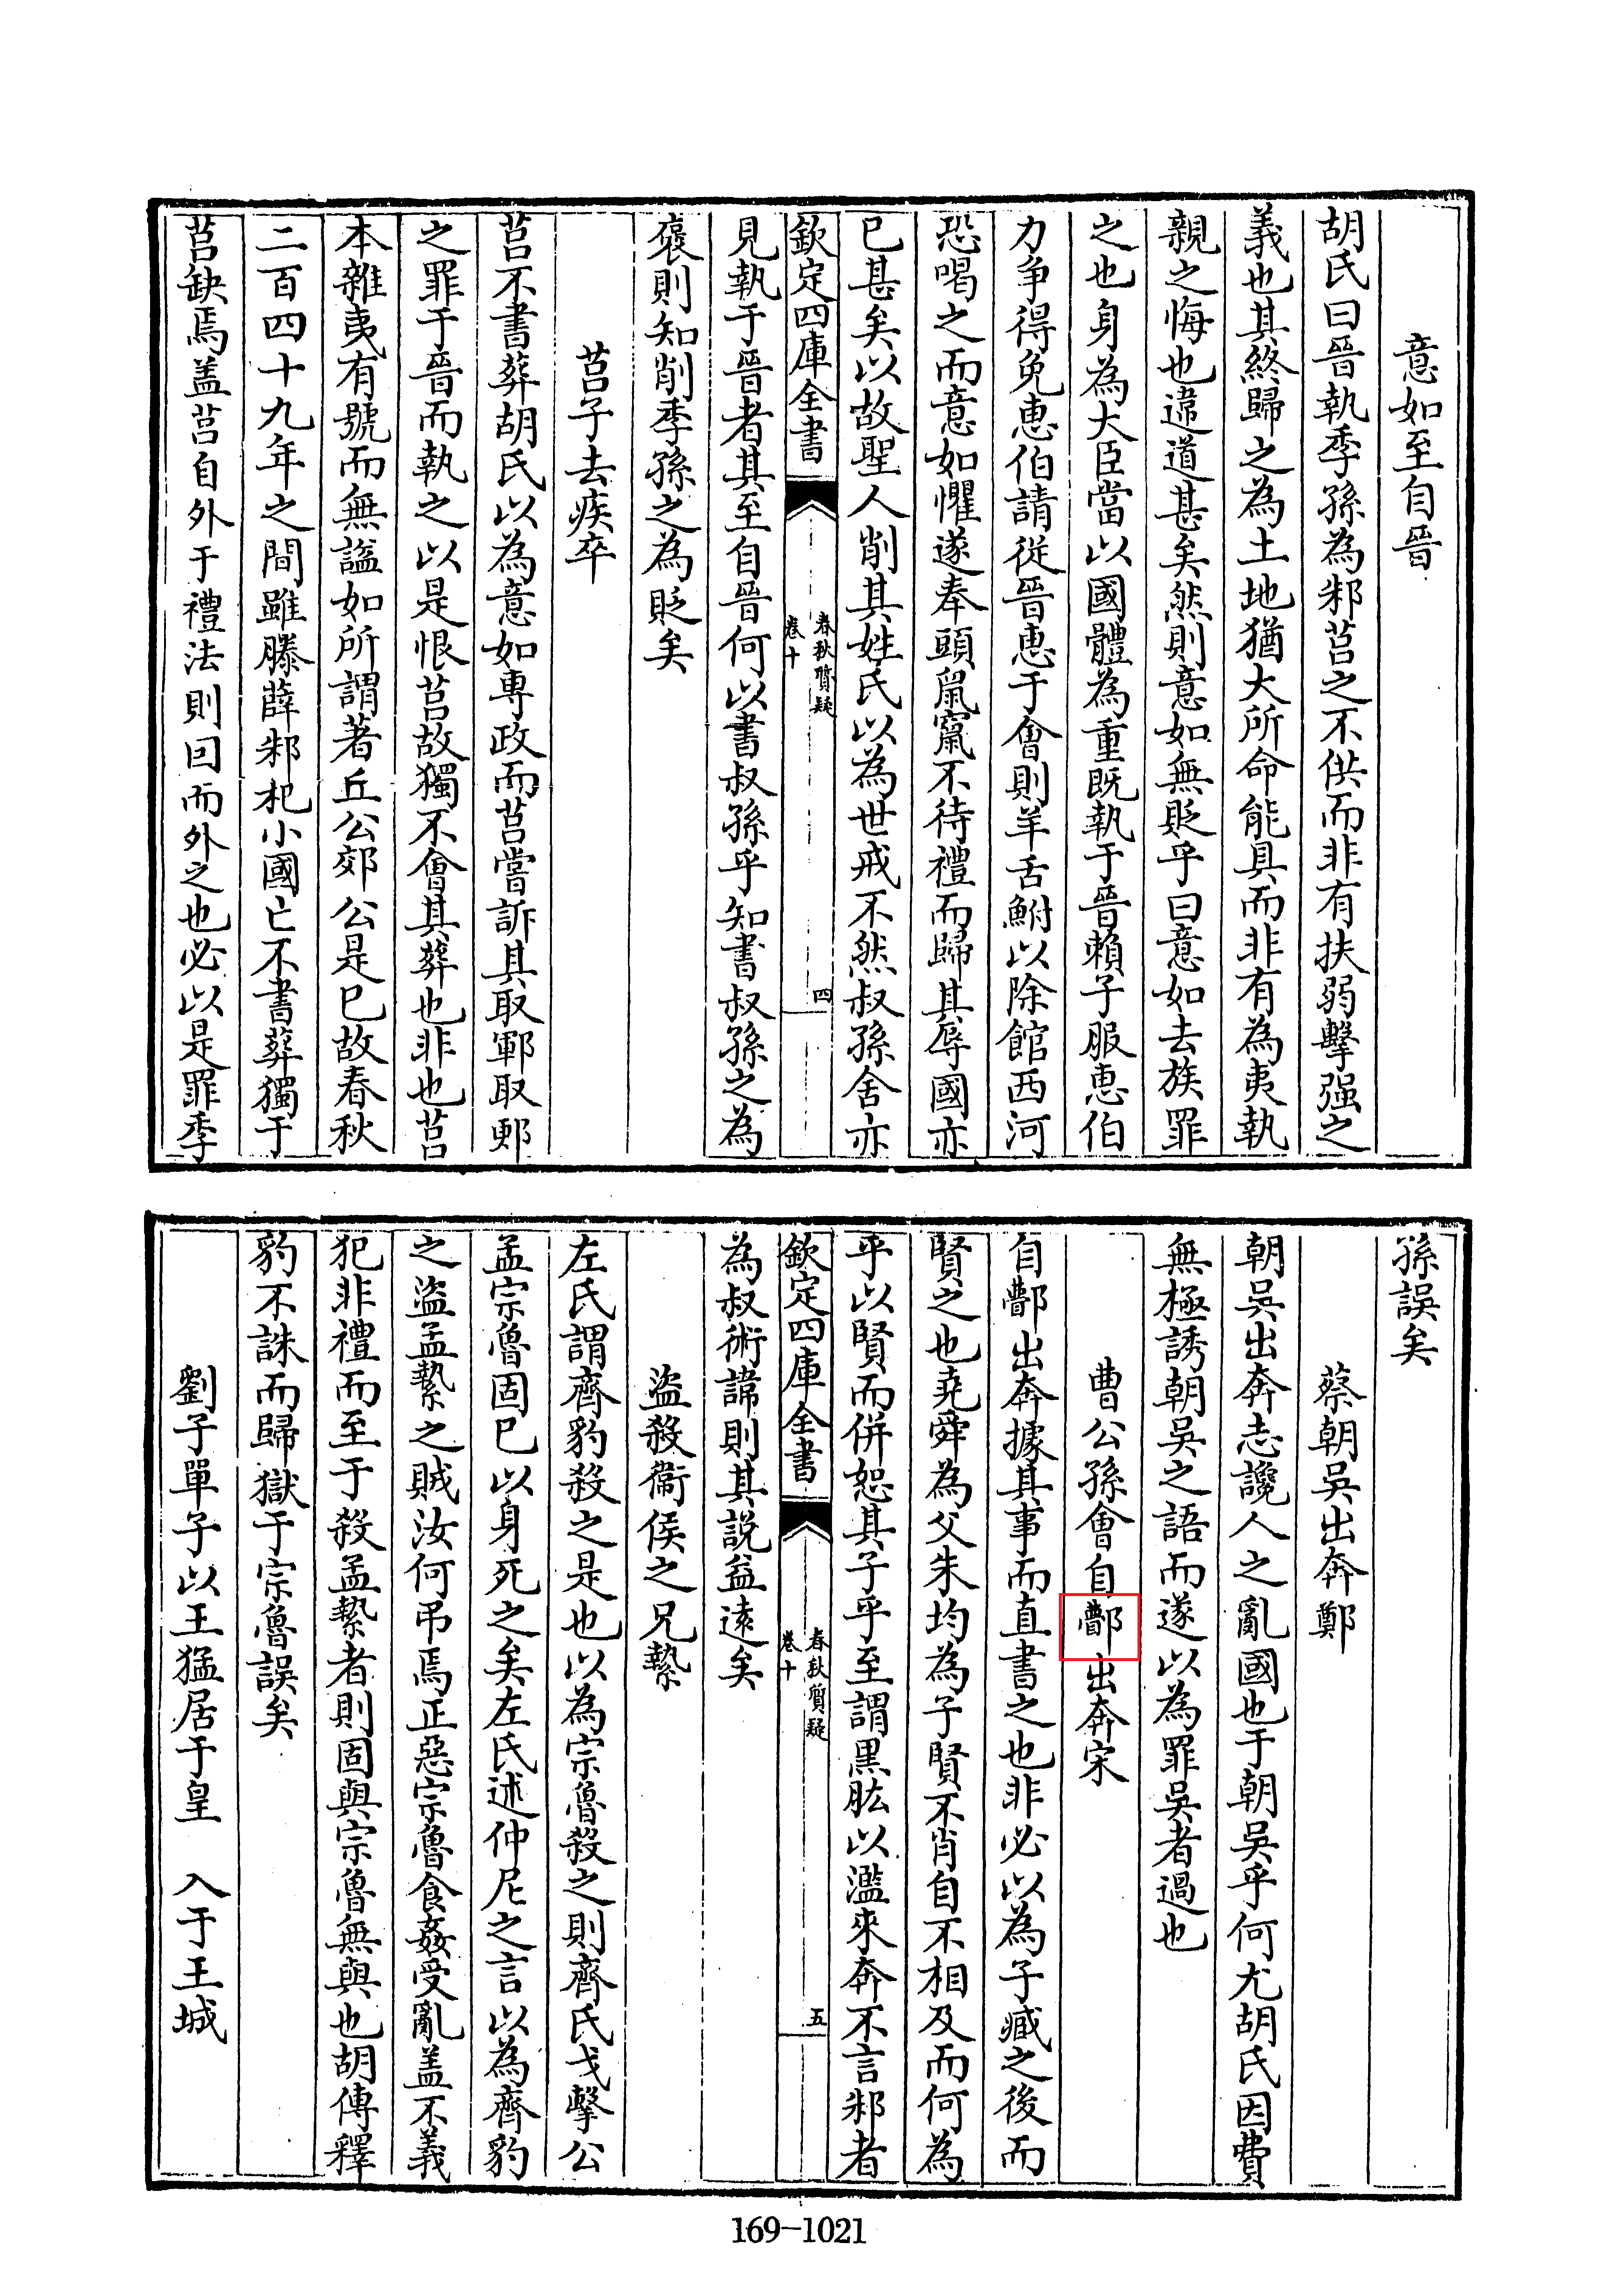 意如至自晉
胡氏曰晉執季孫為邾莒之不供而非有扶弱擊强之
義也其終歸之為土地猶大所命能具而非有為夷執
親之悔也違道甚矣然則意如無貶乎曰意如去族罪
之也身為大臣當以國體為重既執于晉賴子服惠伯
力爭得免惠伯請從晉惠于會則羊舌鮒以除館西河
恐喝之而意如懼遂奉頭鼠竄不待禮而歸其辱國亦
已甚矣以故聖人削其姓氏以為世戒不然叔孫舍亦
欽定四庫全書
春秋質疑
卷十
四
見執于晉者其至自晉何以書叔孫乎知書叔孫之為
褒則知削季孫之為貶矣
莒子去疾卒
莒不書葬胡氏以為意如專政而莒嘗訴其取鄆取郠
之罪于晉而執之以是恨莒故獨不會其葬也非也莒
本雜夷有號而無諡如所謂著丘公郊公是已故春秋
二百四十九年之間雖滕薛邾杞小國亡不書葬獨于
莒缺焉盖莒自外于禮法則回而外之也必以是罪季
孫誤矣
蔡朝吳出奔鄭
朝吳出奔志讒人之亂國也于朝吳乎何尤胡氏因費
無極誘朝吳之語而遂以為罪吳者過也
曹公孫會自鄸出奔宋
自鄸出奔據其事而直書之也非必以為子臧之後而
賢之也堯舜為父朱均為子賢不肖自不相及而何為
乎以賢而併恕其子乎至謂黒肱以濫來奔不言邾者
欽定四庫全書
春秋質疑
卷十
五
為叔術諱則其説益遠矣
盜殺衛侯之兄縶
左氏謂齊豹殺之是也以為宗魯殺之則齊氏戈擊公
孟宗魯固已以身死之矣左氏述仲尼之言以為齊豹
之盜孟縶之賊汝何弔焉正惡宗魯食姦受亂盖不義
犯非禮而至于殺孟縶者則固與宗魯無與也胡傳釋
豹不誅而歸獄于宗魯誤矣
劉子單子以王猛居于皇　入于王城
169-1021